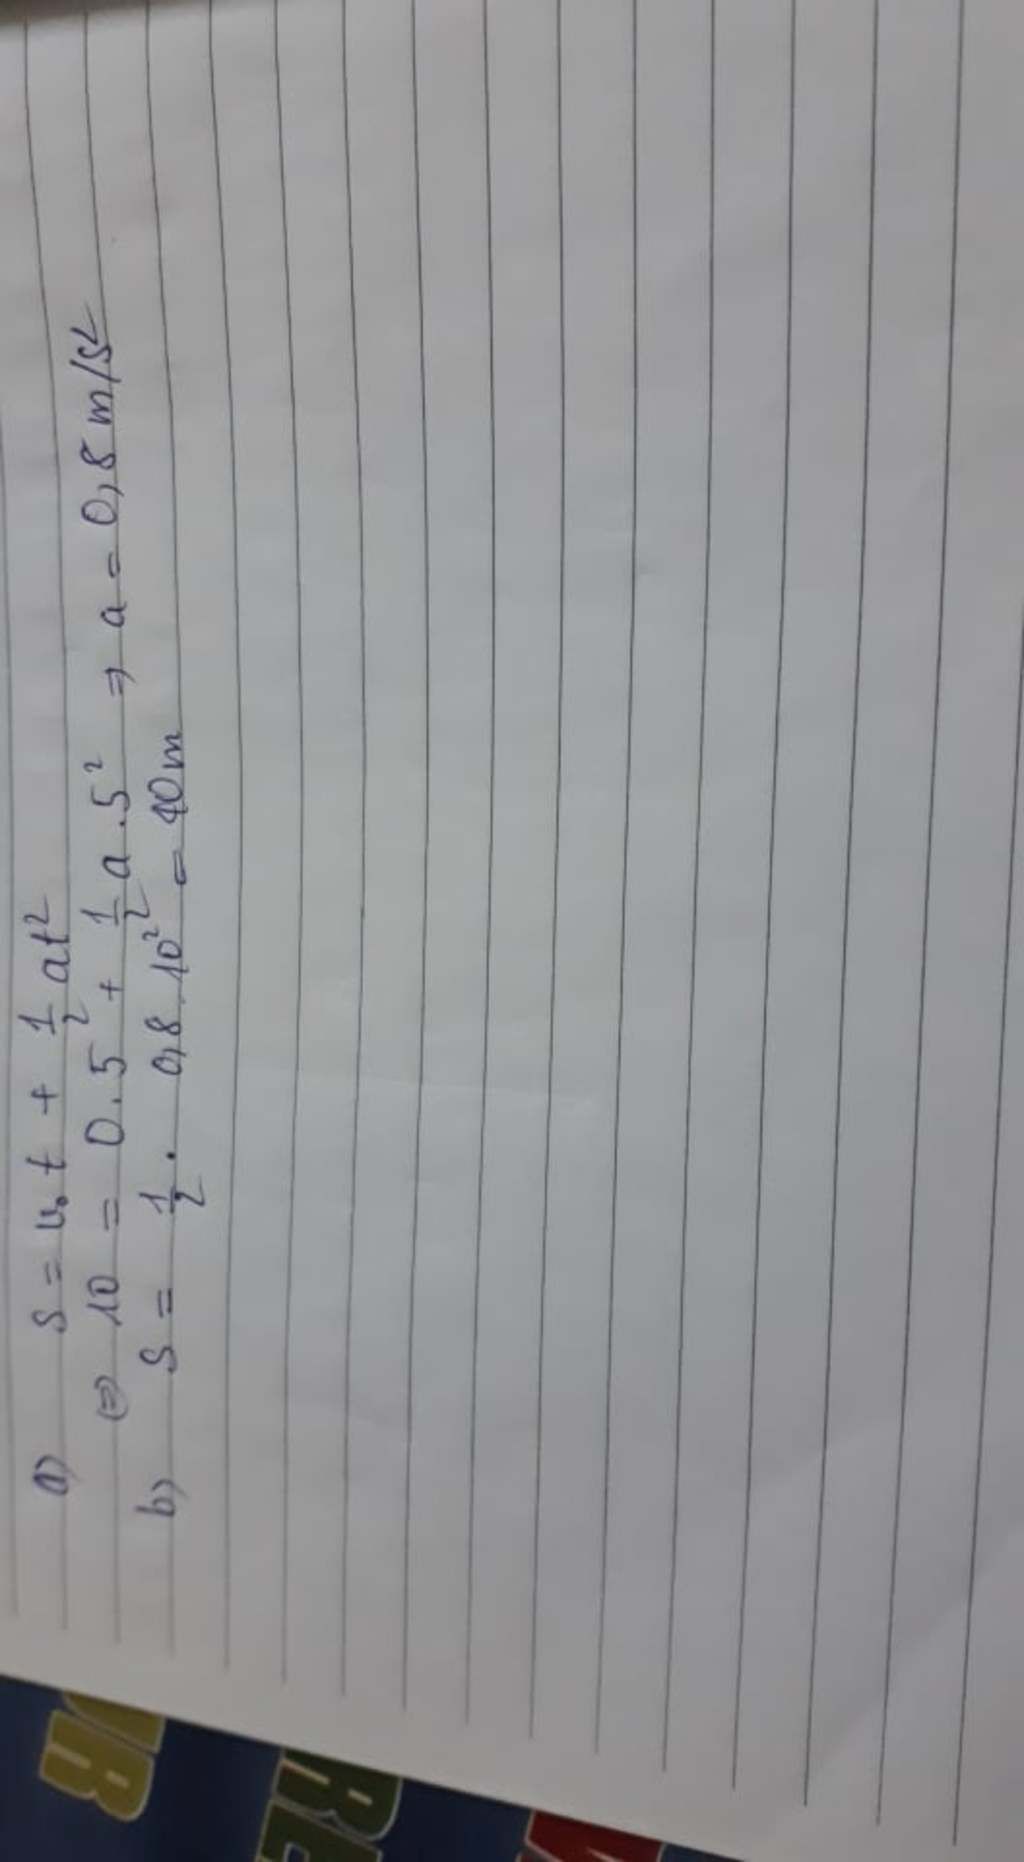 a) s = v₀t + 1/2 at²
(=) 10 = 0.5 + 1/2 a.5² => a = 0,8 m/s²
b) s = 1/2 . 0,8.10² = 40m